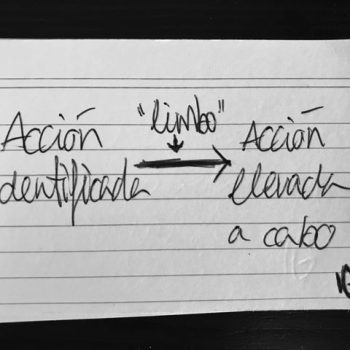 "limbo"
Acción
dentificada
Acción
llevada
a cabo